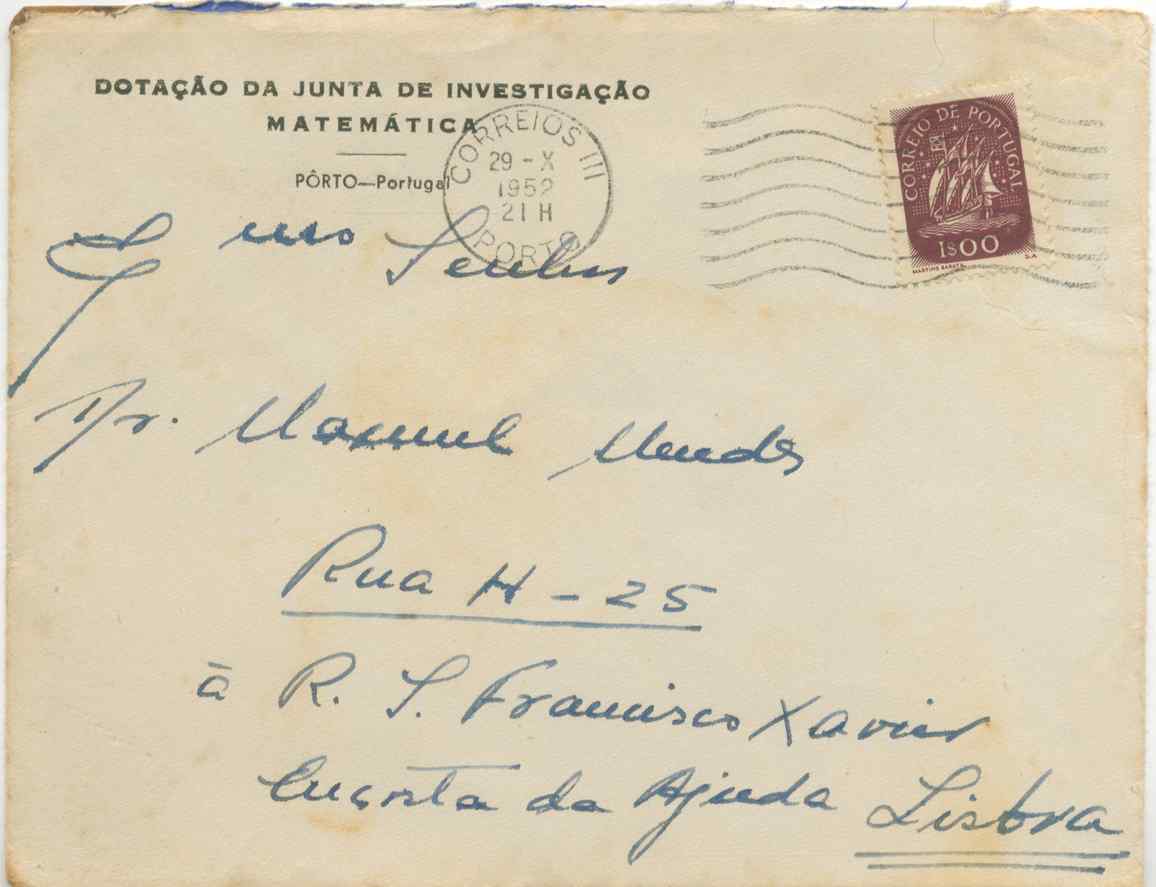 DOTAÇÃO DA JUNTA DE INVESTIGAÇÃO
MATEMÁTICA
PÔRTO—Portugal
CORREIOS III
29 - X
1952
21 H
PORTO
CORREIO DE PORTUGAL
1$00
MARTINS BARATA
Exmo Senhor
Dr. Manuel Mendes
Rua H - 25
à R. S. Francisco Xavier
Encosta da Ajuda Lisboa